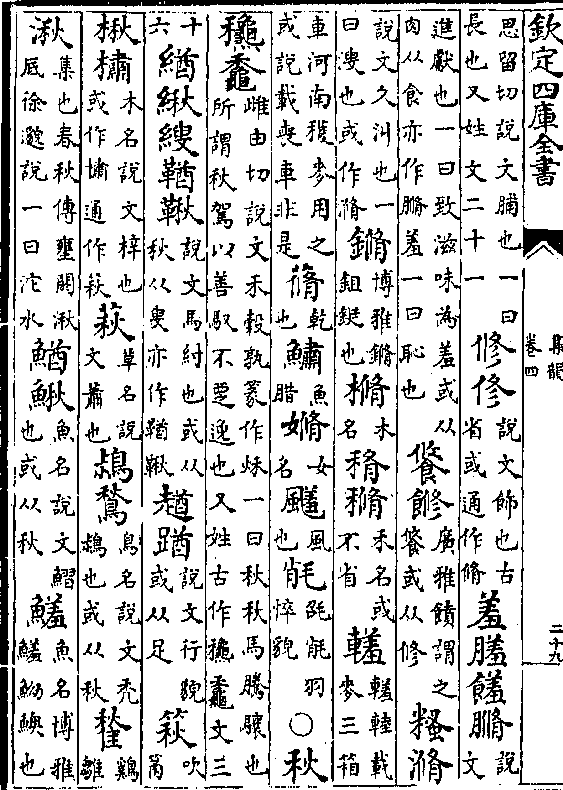 欽定四庫全書
集韻
卷四
二十九
思留切說文脯也一曰長也又姓文二十一 修俢 說文飾也古省或通作脩 羞饈 說文
進獻也一曰致滋味為羞或从肉从食亦作羞一曰恥也 廣雅饙謂之或从修 糔滫
說文久泔也一曰溲也或作滫 鎀 博雅鎀鉏鋌也 樇 木名 禾名或不省 載麥三箱
車河南穫麥用之或說載喪車非是 蓨 乾也 鱐 魚腊 女名 風也 羽悴貌 ○ 秋
龝 雌由切說文禾穀孰篆作秌一曰秋秋馬騰驤也所謂秋駕以善馭不覂逸也又姓古作龝文三
十六 緧鞧鞦 說文馬紂也或从秋从叟亦作鞧鞦 趥 說文行貌或从足 篍 吹筩
楸橚 木名說文梓也或作橚通作萩 萩 草名說文蕭也 鶖 鳥名說文禿也或从秋 雞雛
湫 集也春秋傳壅閼湫底徐邈說一曰沱水 鰌鰍 魚名說文鰼也或从秋 魚名博雅也